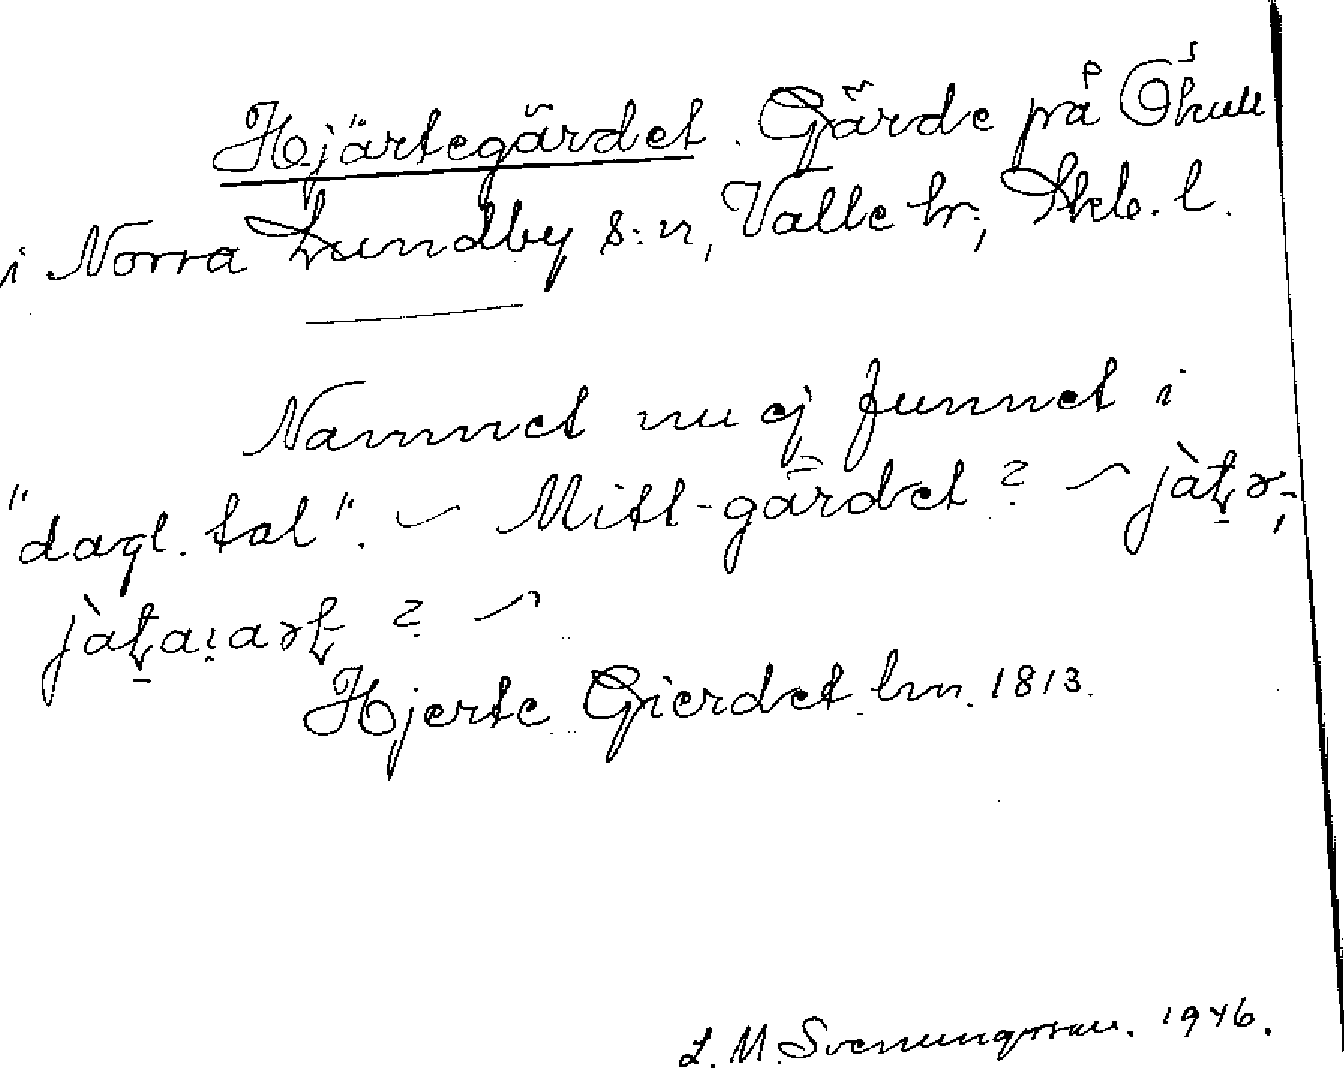 Hjärtegärdet. Gärde på Ökull
i Norra Lundby s:n, Valle hr, Skb. l.
Namnet nu ej funnet i
"dagl. tal". ~ Mitt-gärdet ? ~
? ~
Hjerte Gierdet lm. 1813.
L. M. Svenungsson. 1946.